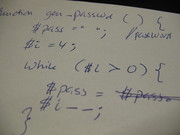 function gen_password() {
#pass = " ";
#i = 4;
while (#i > 0) {
#pass =
#i--;
}